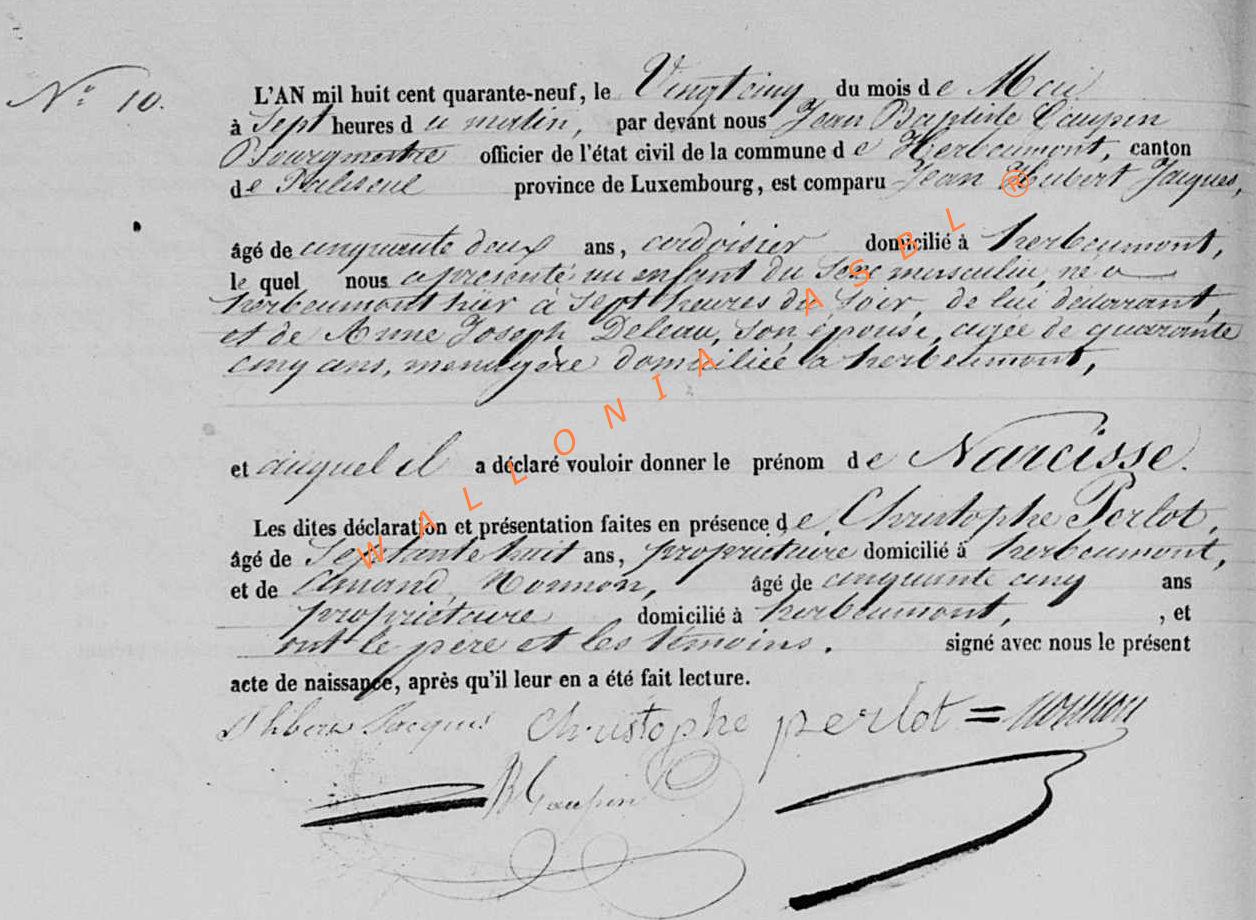 N° 10.
L'AN mil huit cent quarante-neuf, le Vingt cinq du mois de Mai
à Sept heures du matin, par devant nous Jean Baptiste Caupin
Bourgmestre officier de l'état civil de la commune de Herbeumont, canton
de Paliseul province de Luxembourg, est comparu Jean Hubert Jacques,
âgé de cinquante deux ans, ardoisier domicilié à herbeumont,
le quel nous a présenté un enfant du sexe masculin, né à
herbeumont hier à sept heures du soir, de lui déclarant,
et de Anne Joseph Deleau, son épouse, agée de quarante
cinq ans, menagère domiciliée à herbeumont,
et auquel il a déclaré vouloir donner le prénom de Narcisse.
Les dites déclaration et présentation faites en présence de Christophe Perlot,
âgé de Septante huit ans, propriétaire domicilié à herbeumont,
et de Amand Nonnon, âgé de cinquante cinq ans
propriétaire domicilié à herbeumont, , et
ont le père et les témoins. signé avec nous le présent
acte de naissance, après qu'il leur en a été fait lecture.
Jacques Christophe perlot = nonnon
B Caupin
WALLONIA ASBL ®